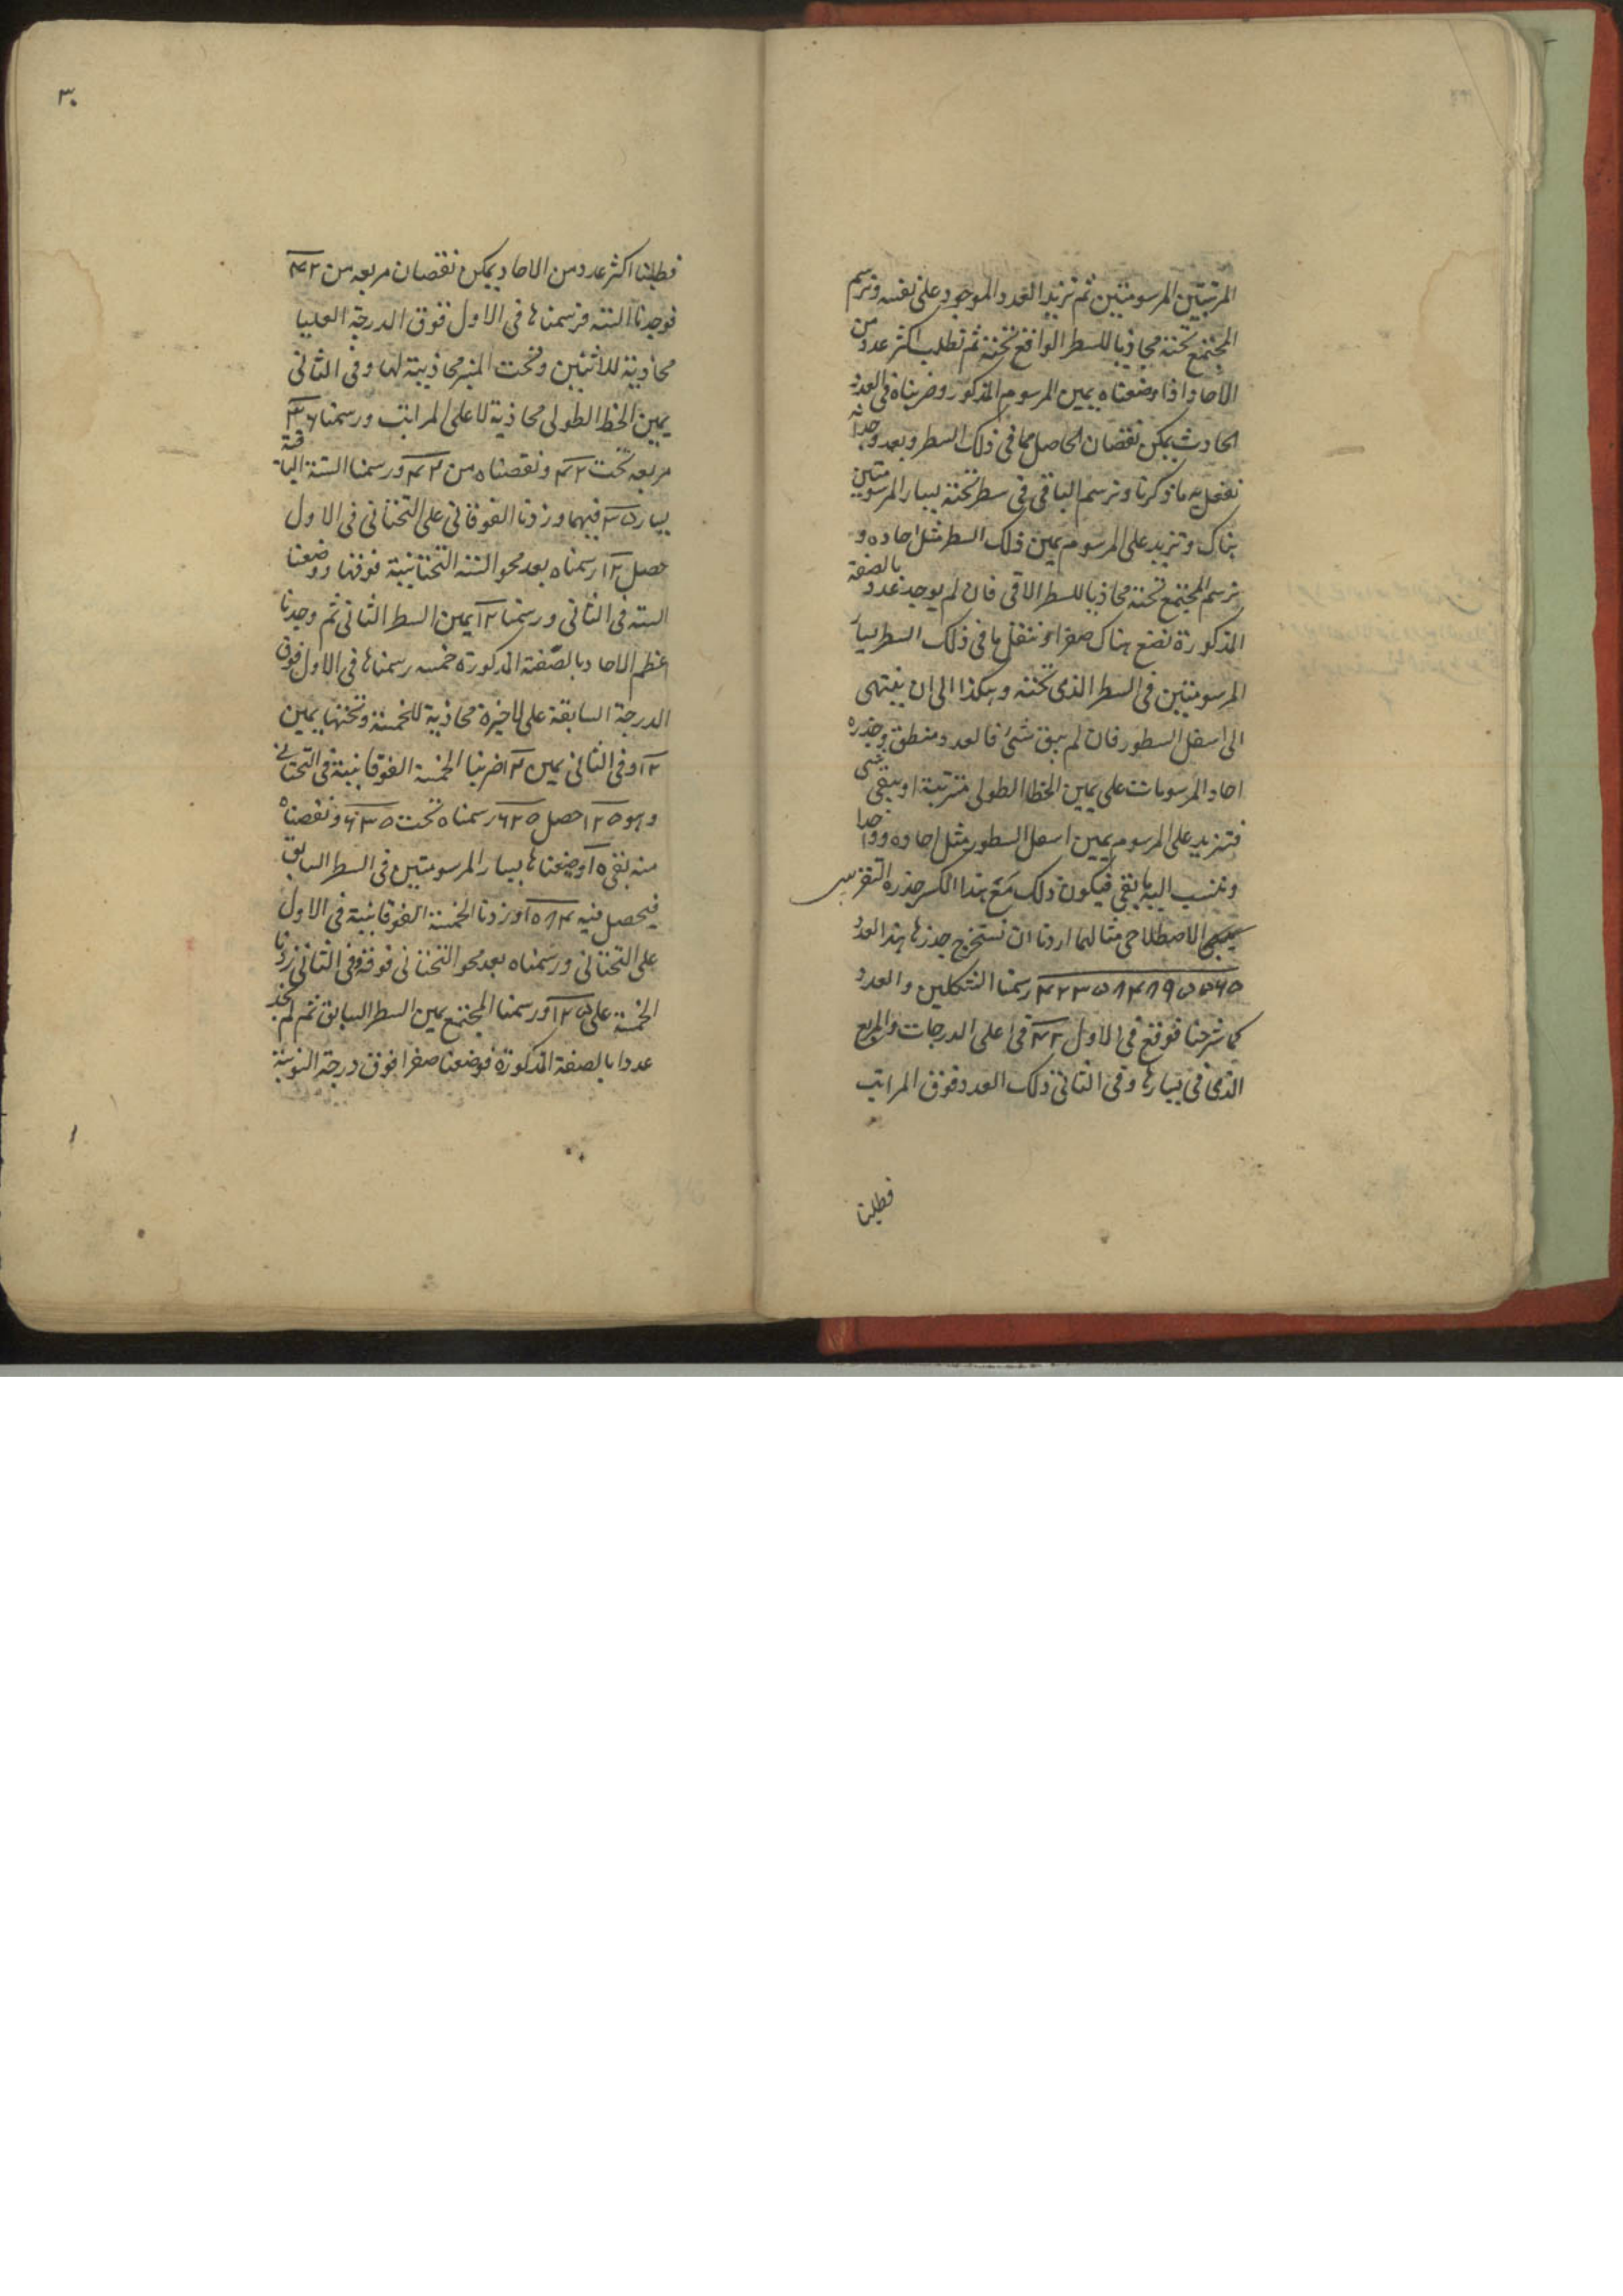 المرتبتين المرسومتين ثم نزيد العدد الموجود على نفسه ونرسم
المجتمع تحته محاذيا للسطر الواقع تحته ثم نطلب اكثر عدد من
الاحاد اذا وضعناه يمين المرسوم المذكور وضربناه فى العدد
الحادث يمكن نقصان الحاصل مما فى ذلك السطر وبعد وجدانه
نفعل به ما ذكرنا ونرسم الباقى فى سطر تحته يسار المرسومتين
هناك ونزيد على المرسوم يمين ذلك السطر مثل احاده و
نرسم المجتمع تحته محاذيا للسطر الآتى فان لم يوجد عدد بالصفة
المذكورة نضع هناك صفرا وننقل ما فى ذلك السطر يسار
المرسومتين فى السطر الذى تحته وهكذا الى ان ينتهى
الى اسفل السطور فان لم يبق شئ فالعدد منطق وجذره
احاد المرسومات على يمين الخط الطولى مترتبة او يبقى شى
فنزيد على المرسوم يمين اسفل السطور مثل احاده وواحدا
وننسب اليه ما بقى فيكون ذلك مع هذا الكسر جذره التقريبى
الاصطلاحى مثالهما اردنا ان نستخرج جذر هذا العدد
۴۲۳۵۸۴۸۹۵۵۶۵ رسمنا الشكلين والعدد
كما شرحنا فوقع فى الاول ۴۲ فى اعلى الدرجات والمربع
الذى فى يسارها وفى الثانى ذلك العدد فوق المراتب
فطلبنا
۳۰
فطلبنا اكثر عدد من الاحاد يمكن نقصان مربعه من ۴۲
فوجدنا الستة فرسمناها فى الاول فوق الدرجة العليا
محاذية للاثنين وتحت المنبر محاذية لها وفى الثانى
يمين الخط الطولى محاذية لاعلى المراتب ورسمنا ۳۶
مربعه تحت ۴۲ ونقصناه من ۴۲ ورسمنا الستة الباقية
يسار ۳۵ فيهما وزدنا الفوقانى على التحتانى فى الاول
حصل ۱۲ رسمناه بعد محو الستة التحتانية فوقها ووضعنا
الستة فى الثانى ورسمنا ۱۲ يمين السطر الثانى ثم وجدنا
اعظم الاحاد بالصفة المذكورة خمسة رسمناها فى الاول فوق
الدرجة السابقة على الاخيرة محاذية للخمسة وتحتها يمين
۱۲ وفى الثانى يمين ۱۲ ضربنا الخمسة الفوقانية فى التحتانى
وهو ۱۲۵ حصل ۶۲۵ رسمناه تحت ۶۳۵ ونقصناه
منه بقى ۱۰ وضعناها يسار المرسومتين فى السطر السابق
فيحصل فيه ۱۰۵۸۴ وزدنا الخمسة الفوقانية فى الاول
على التحتانى ورسمناه بعد محو التحتانى فوقه وفى الثانى زدنا
الخمسة على ۱۲۵ ورسمنا المجتمع يمين السطر السابق ثم لم نجد
عددا بالصفة المذكورة فوضعنا صفرا فوق درجة النوبة